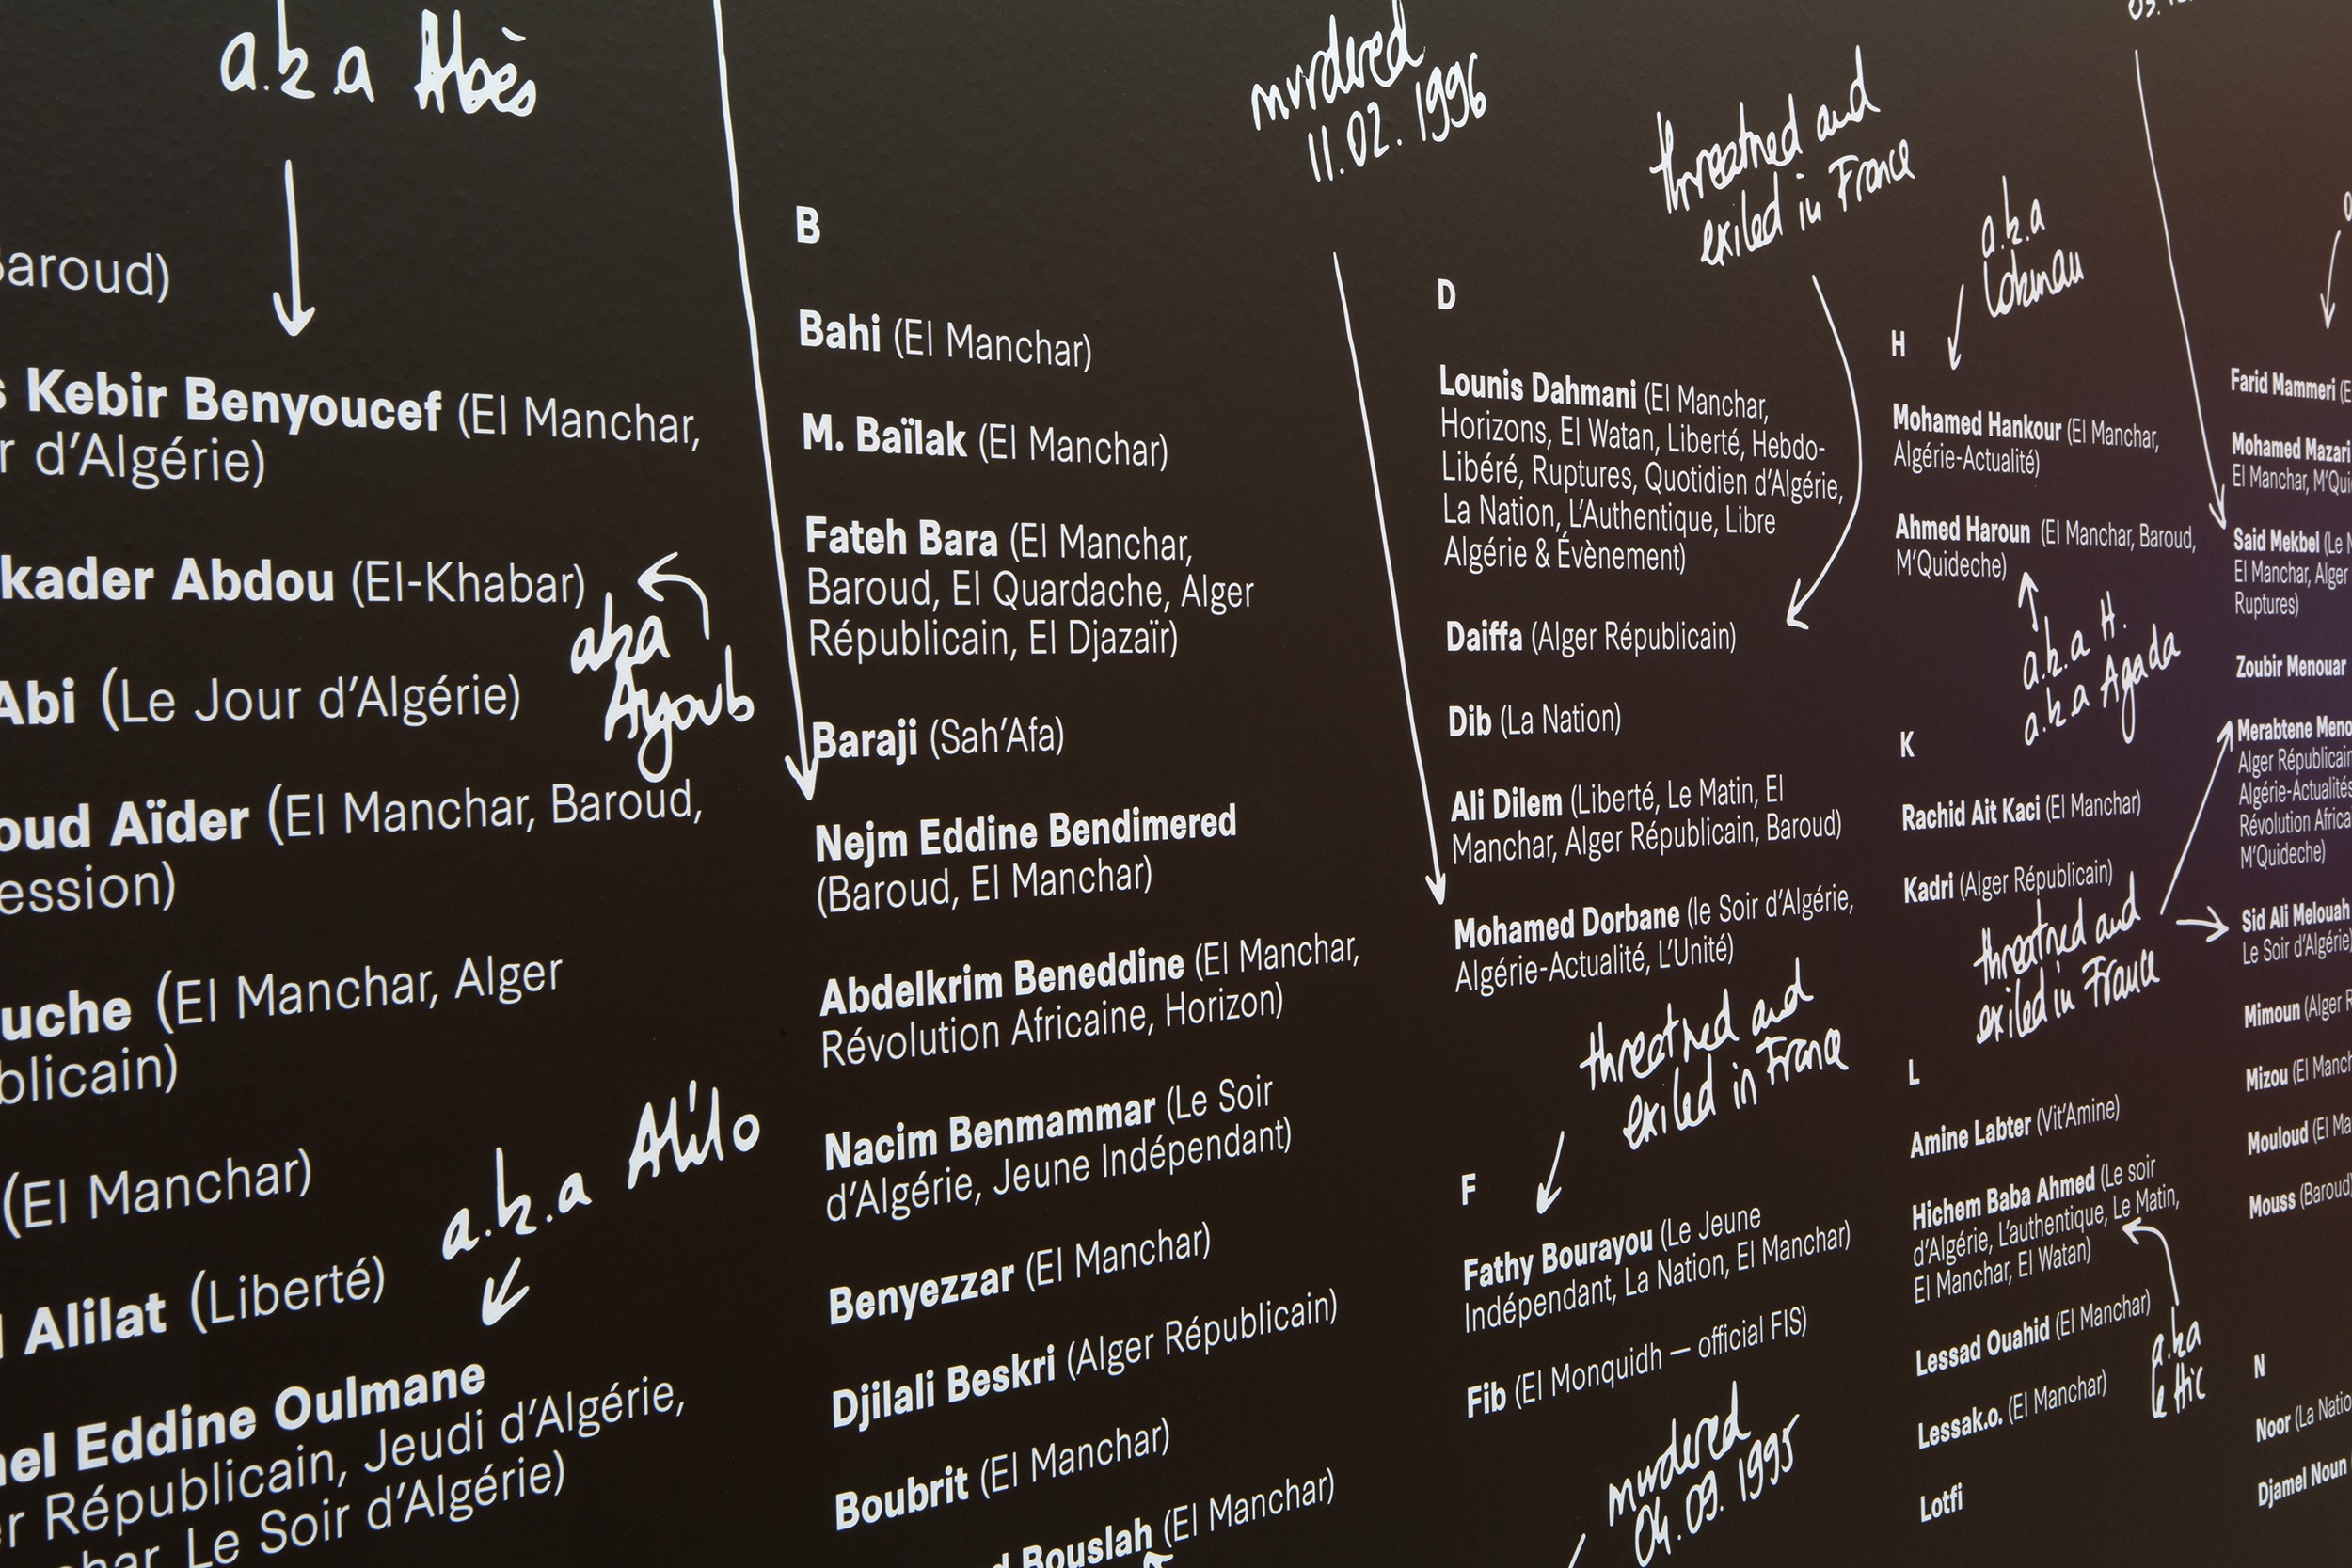 a.k.a Abès
Baroud)
Kebir Benyoucef (El Manchar,
r d'Algérie)
kader Abdou (El-Khabar)
aka
Ayoub
Abi (Le Jour d'Algérie)
oud Aïder (El Manchar, Baroud,
ession)
uche (El Manchar, Alger
blicain)
(El Manchar)
a.k.a Alilo
Alilat (Liberté)
el Eddine Oulmane
er Républicain, Jeudi d'Algérie,
char, Le Soir d'Algérie)
B
Bahi (El Manchar)
M. Baïlak (El Manchar)
Fateh Bara (El Manchar,
Baroud, El Quardache, Alger
Républicain, El Djazaïr)
Baraji (Sah'Afa)
Nejm Eddine Bendimered
(Baroud, El Manchar)
Abdelkrim Beneddine (El Manchar,
Révolution Africaine, Horizon)
Nacim Benmammar (Le Soir
d'Algérie, Jeune Indépendant)
Benyezzar (El Manchar)
Djilali Beskri (Alger Républicain)
Boubrit (El Manchar)
d Bouslah (El Manchar)
murdered
11.02.1996
threatned and
exiled in France
D
Lounis Dahmani (El Manchar,
Horizons, El Watan, Liberté, Hebdo-
Libéré, Ruptures, Quotidien d'Algérie,
La Nation, L'Authentique, Libre
Algérie & Évènement)
Daiffa (Alger Républicain)
Dib (La Nation)
Ali Dilem (Liberté, Le Matin, El
Manchar, Alger Républicain, Baroud)
Mohamed Dorbane (le Soir d'Algérie,
Algérie-Actualité, L'Unité)
threatned and
exiled in France
F
Fathy Bourayou (Le Jeune
Indépendant, La Nation, El Manchar)
Fib (El Monquidh — official FIS)
murdered
04.09.1995
a.k.a
Lokman
H
Mohamed Hankour (El Manchar,
Algérie-Actualité)
Ahmed Haroun (El Manchar, Baroud,
M'Quideche)
a.k.a H.
a.k.a Agada
K
Rachid Ait Kaci (El Manchar)
Kadri (Alger Républicain)
threatned and
exiled in France
L
Amine Labter (Vit'Amine)
Hichem Baba Ahmed (Le soir
d'Algérie, L'authentique, Le Matin,
El Manchar, El Watan)
Lessad Ouahid (El Manchar)
a.k.a
le Hic
Lessak.o. (El Manchar)
Lotfi
03.
Farid Mammeri (E
Mohamed Mazari
El Manchar, M'Qui
Said Mekbel (Le
El Manchar, Alger
Ruptures)
Zoubir Menouar
Merabtene Meno
Alger Républicain
Algérie-Actualités
Révolution Africa
M'Quideche)
Sid Ali Melouah
Le Soir d'Algérie)
Mimoun (Alger R
Mizou (El Manch
Mouloud (El Ma
Mouss (Baroud)
N
Noor (La Natio
Djamel Noun